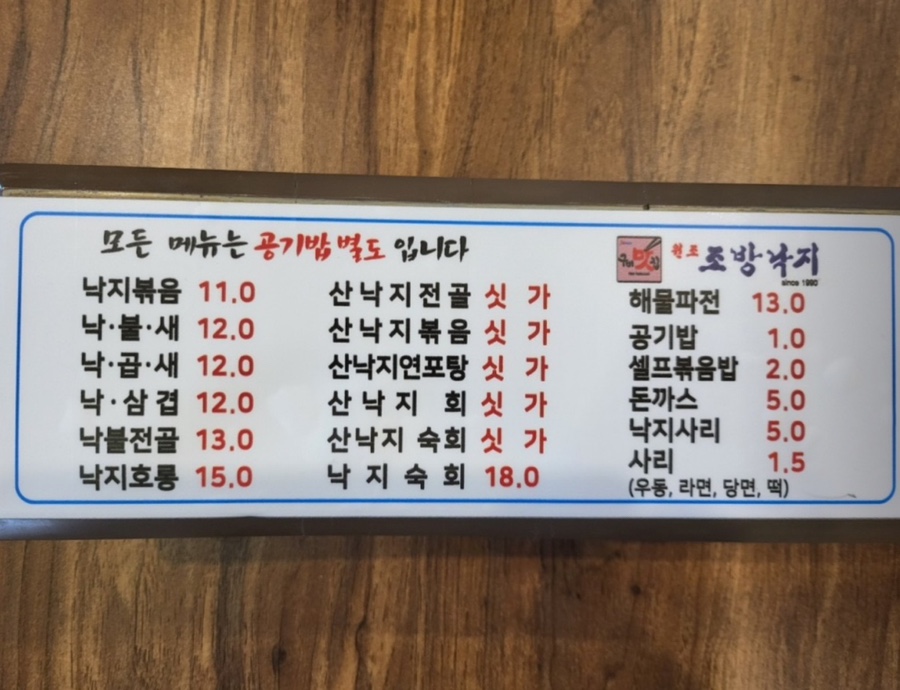 모든 메뉴는 공기밥 별도 입니다
낙지볶음 11.0
낙·불·새 12.0
낙·곱·새 12.0
낙·삼겹 12.0
낙불전골 13.0
낙지호롱 15.0
산낙지전골 싯가
산낙지볶음 싯가
산낙지연포탕 싯가
산낙지 회 싯가
산낙지 숙회 싯가
낙지숙회 18.0
맛
원조 조방낙지
since 1980
해물파전 13.0
공기밥 1.0
셀프볶음밥 2.0
돈까스 5.0
낙지사리 5.0
사리 1.5
(우동, 라면, 당면, 떡)